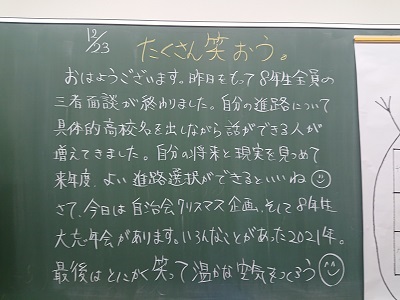 12/23
たくさん笑おう。
おはようございます。昨日をもって8年生全員の
三者面談が終わりました。自分の進路について
具体的高校名を出しながら話ができる人が
増えてきました。自分の将来と現実を見つめて
来年度、よい進路選択ができるといいね
さて、今日は自治会クリスマス企画、そして8年生
大忘年会があります。いろんなことがあった2021年。
最後はとにかく笑って温かな空気をつくろう